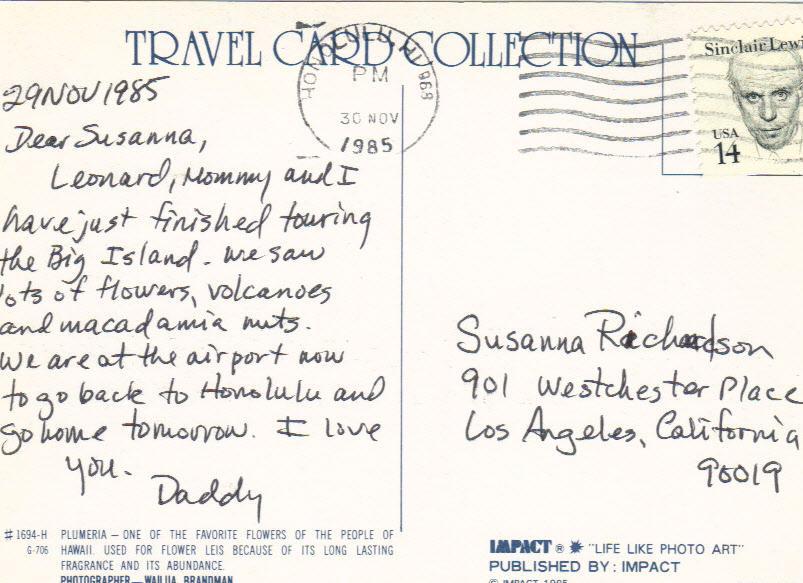 TRAVEL CARD COLLECTION
HONOLULU HI 968
PM
30 NOV
1985
Sinclair Lewi
USA
14
29 NOV 1985
Dear Susanna,
Leonard, Mommy and I
have just finished touring
the Big Island. We saw
lots of flowers, volcanoes
and macadamia nuts.
We are at the airport now
to go back to Honolulu and
go home tomorrow. I love
you.
Daddy
Susanna Richardson
901 Westchester Place
Los Angeles, California
90019
#1694-H PLUMERIA — ONE OF THE FAVORITE FLOWERS OF THE PEOPLE OF
G-706 HAWAII. USED FOR FLOWER LEIS BECAUSE OF ITS LONG LASTING
FRAGRANCE AND ITS ABUNDANCE.
PHOTOGRAPHER—WAILIA, BRANDMAN
IMPACT ® "LIFE LIKE PHOTO ART"
PUBLISHED BY: IMPACT
© IMPACT 1985